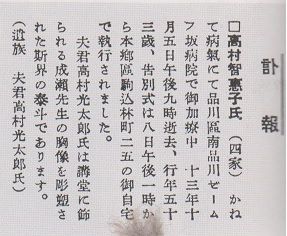 訃報
□高村智惠子氏（四家）　かね
て病氣にて品川區南品川ゼーム
ス坂病院で御加療中　十三年十
月五日午後九時逝去、行年五十
三歳、告別式は八日午後一時か
ら本郷區駒込林町二五の御自宅
で執行されました。
夫君高村光太郎氏は講堂に飾
られる成瀬先生の胸像を彫塑さ
れた斯界の泰斗であります。
（遺族　夫君高村光太郎氏）